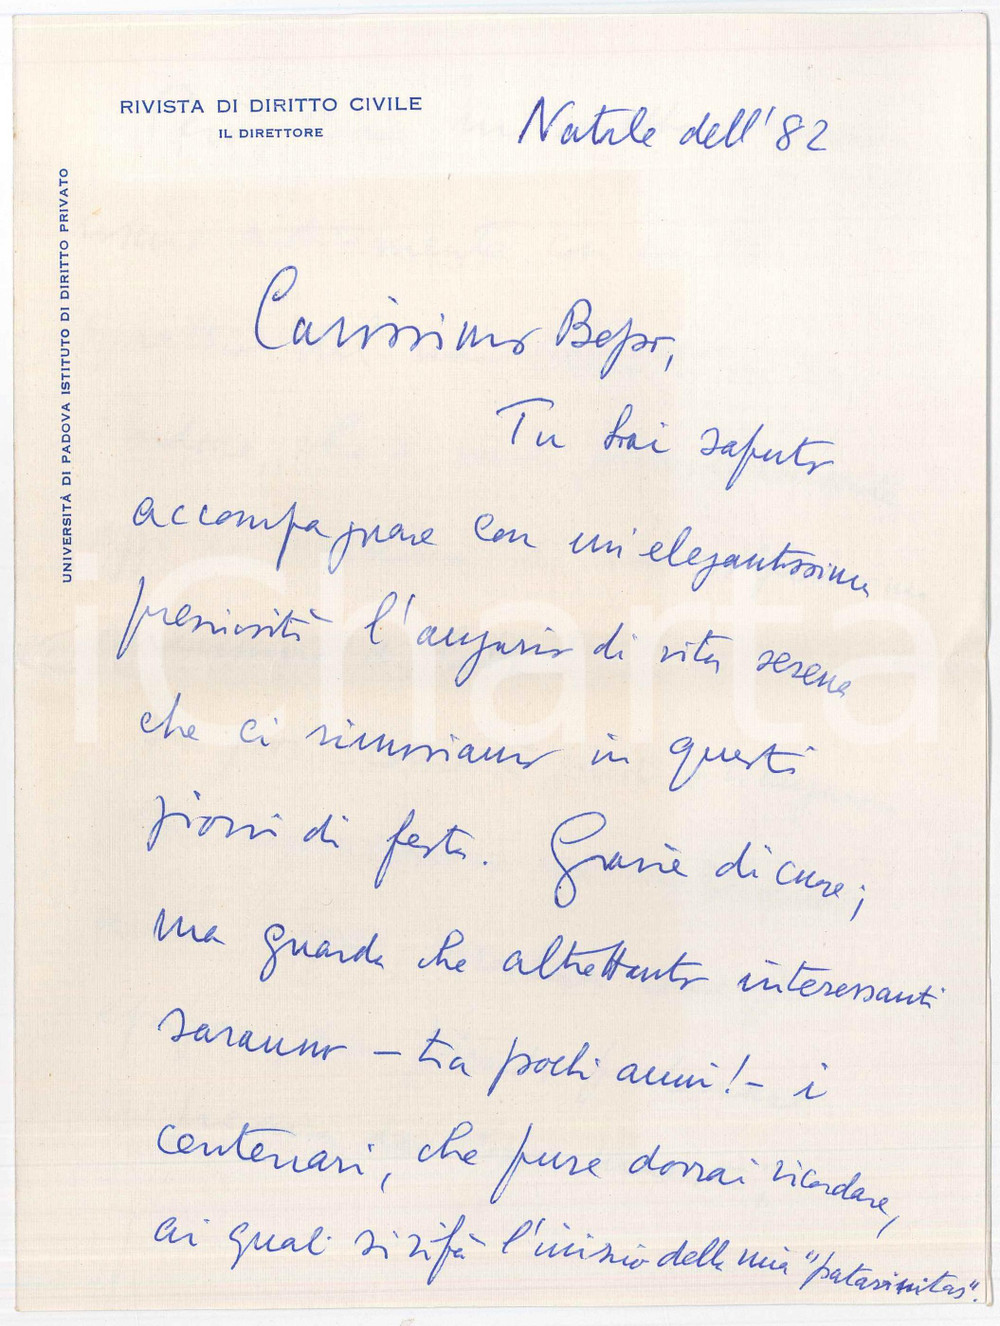 RIVISTA DI DIRITTO CIVILE
IL DIRETTORE
UNIVERSITÀ DI PADOVA ISTITUTO DI DIRITTO PRIVATO
Natale dell'82
Carissimo Bepo,
Tu hai saputo
accompagnare con un'elegantissima
preziosità l'augurio di vita serena
che ci rinnoviamo in questi
giorni di festa. Grazie di cuore;
ma guarda che altrettanto interessanti
saranno – tra pochi anni! – i
centenari, che pure dovrai ricordare,
ai quali si rifà l'inizio della mia "patavinitas".
iCharta